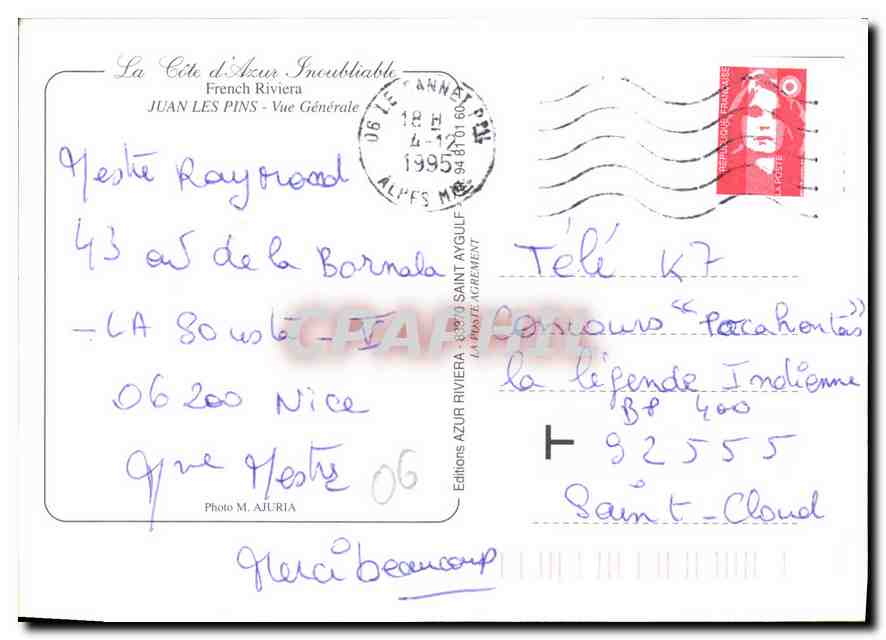 La Côte d'Azur Inoubliable
French Riviera
JUAN LES PINS - Vue Générale
Mestre Raymond
43 av de la Bornala
- LA
06 200 Nice
Mme Mestre
06
Photo M. AJURIA
Merci beaucoup
Editions AZUR RIVIERA - 83370 SAINT AYGULF 94 81 01 60
LA POSTE AGREMENT
06 LE CANNET PPAL
18 H
4-12
1995
ALPES MMES
REPUBLIQUE FRANÇAISE
LA POSTE
Télé K7
Concours "Pocahontas"
la légende Indienne
BP 400
T
92555
Saint-Cloud
CPAPHIL